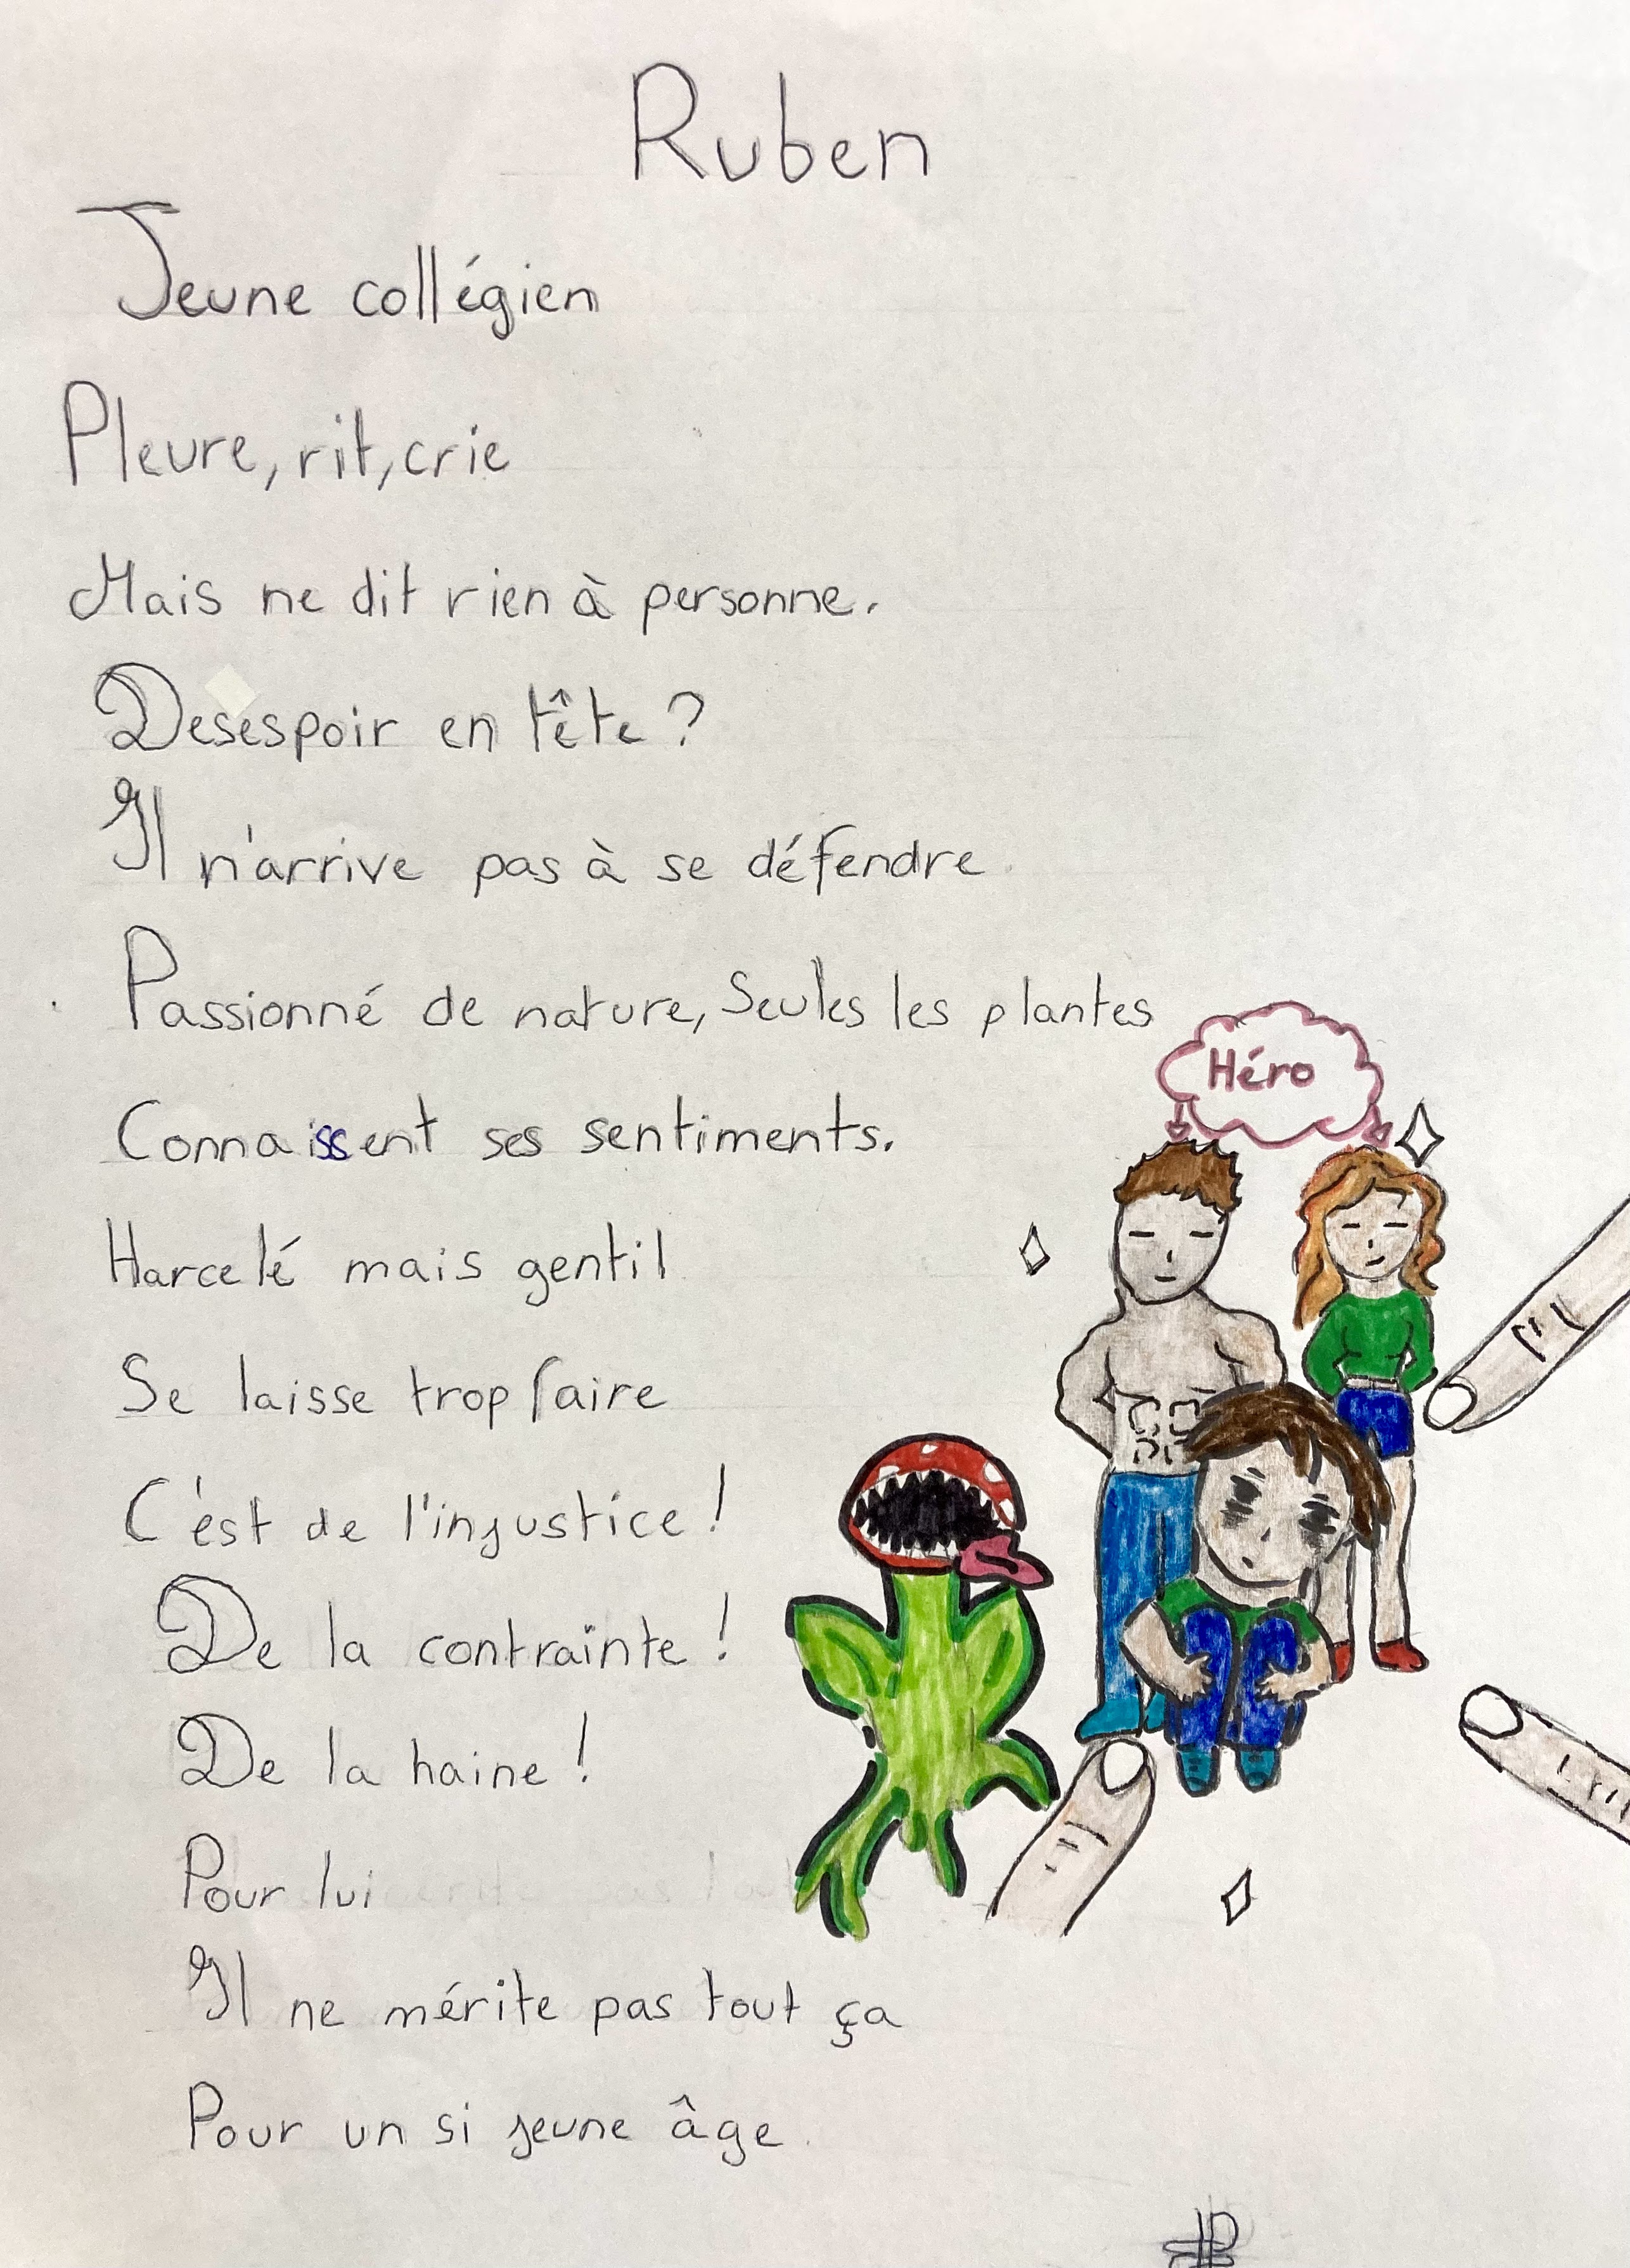 Ruben
Jeune collégien
Pleure, rit, crie
Mais ne dit rien à personne.
Desespoir en tête ?
Il n'arrive pas à se défendre
Passionné de nature, Seules les plantes
Connaissent ses sentiments.
Harcelé mais gentil
Se laisse trop faire
C'est de l'injustice !
De la contrainte !
De la haine !
Pour lui
Il ne mérite pas tout ça
Pour un si jeune âge.
Héro